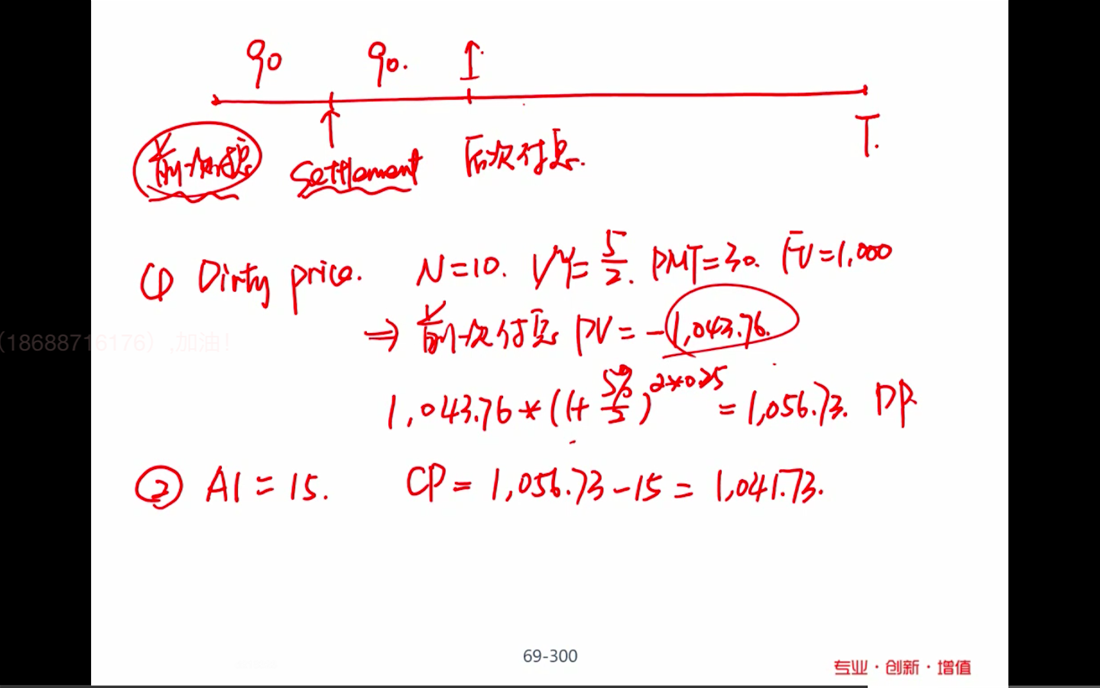 90 90.
前次付息 Settlement 后次付息. T.
① Dirty price. N=10. I/Y=5/2. PMT=30. FV=1,000
⇒ 前次付息 PV = -1,043.76.
(18688716176),加油!
1,043.76*(1+5%/2)^2*0.25 = 1,056.73. DP
② AI = 15. CP = 1,056.73-15 = 1,041.73.
69-300
专业·创新·增值